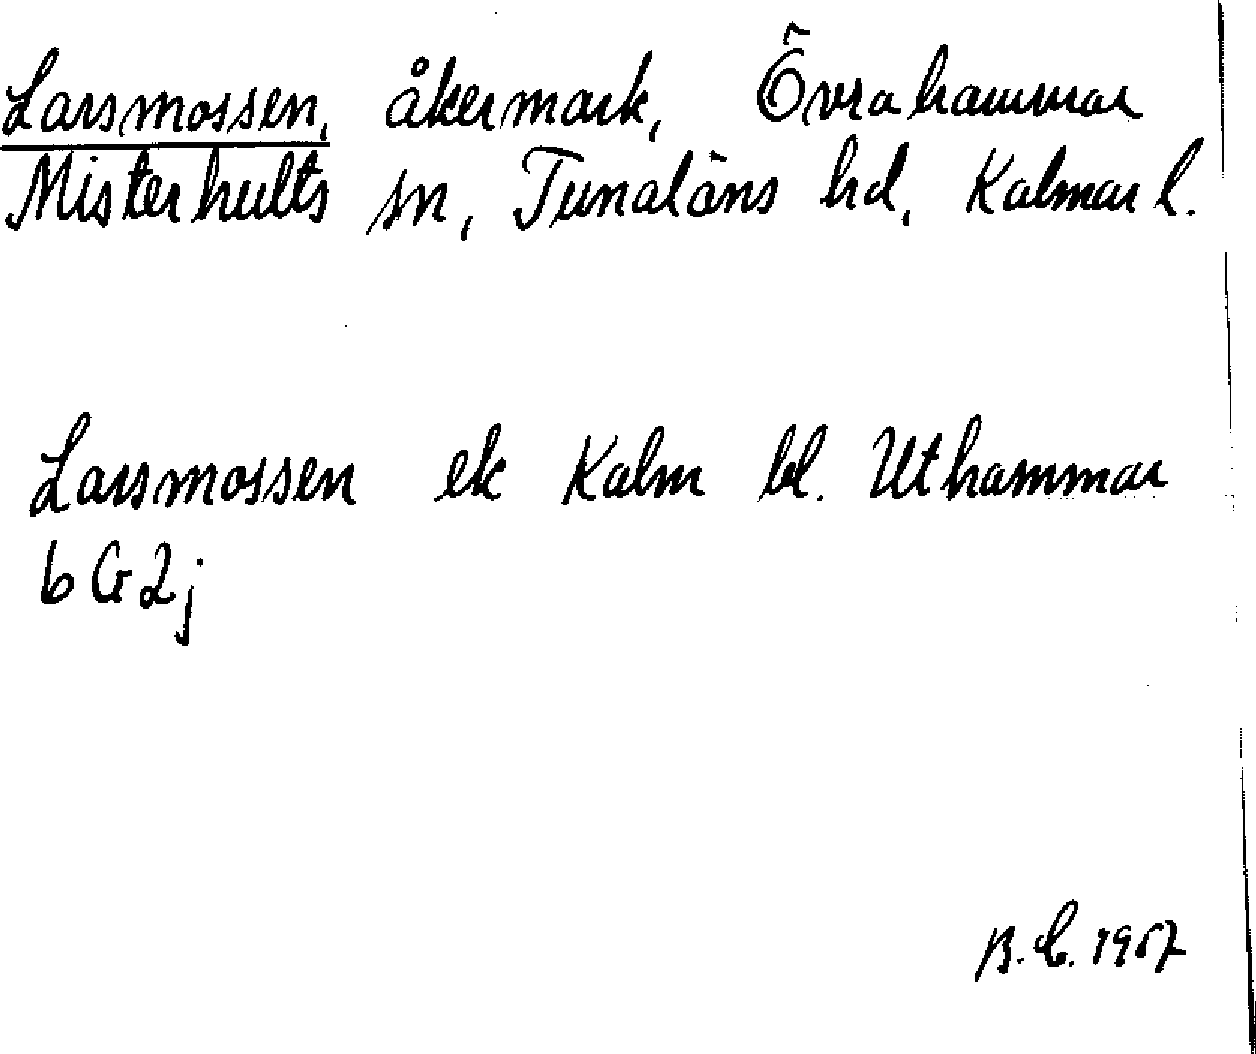 Larsmossen, åkermark, Övrahammar
Misterhults sn, Tunaläns hd, Kalmar l.
Larsmossen ek Kalm bl. Uthammar
6G2j
B.E. 1957